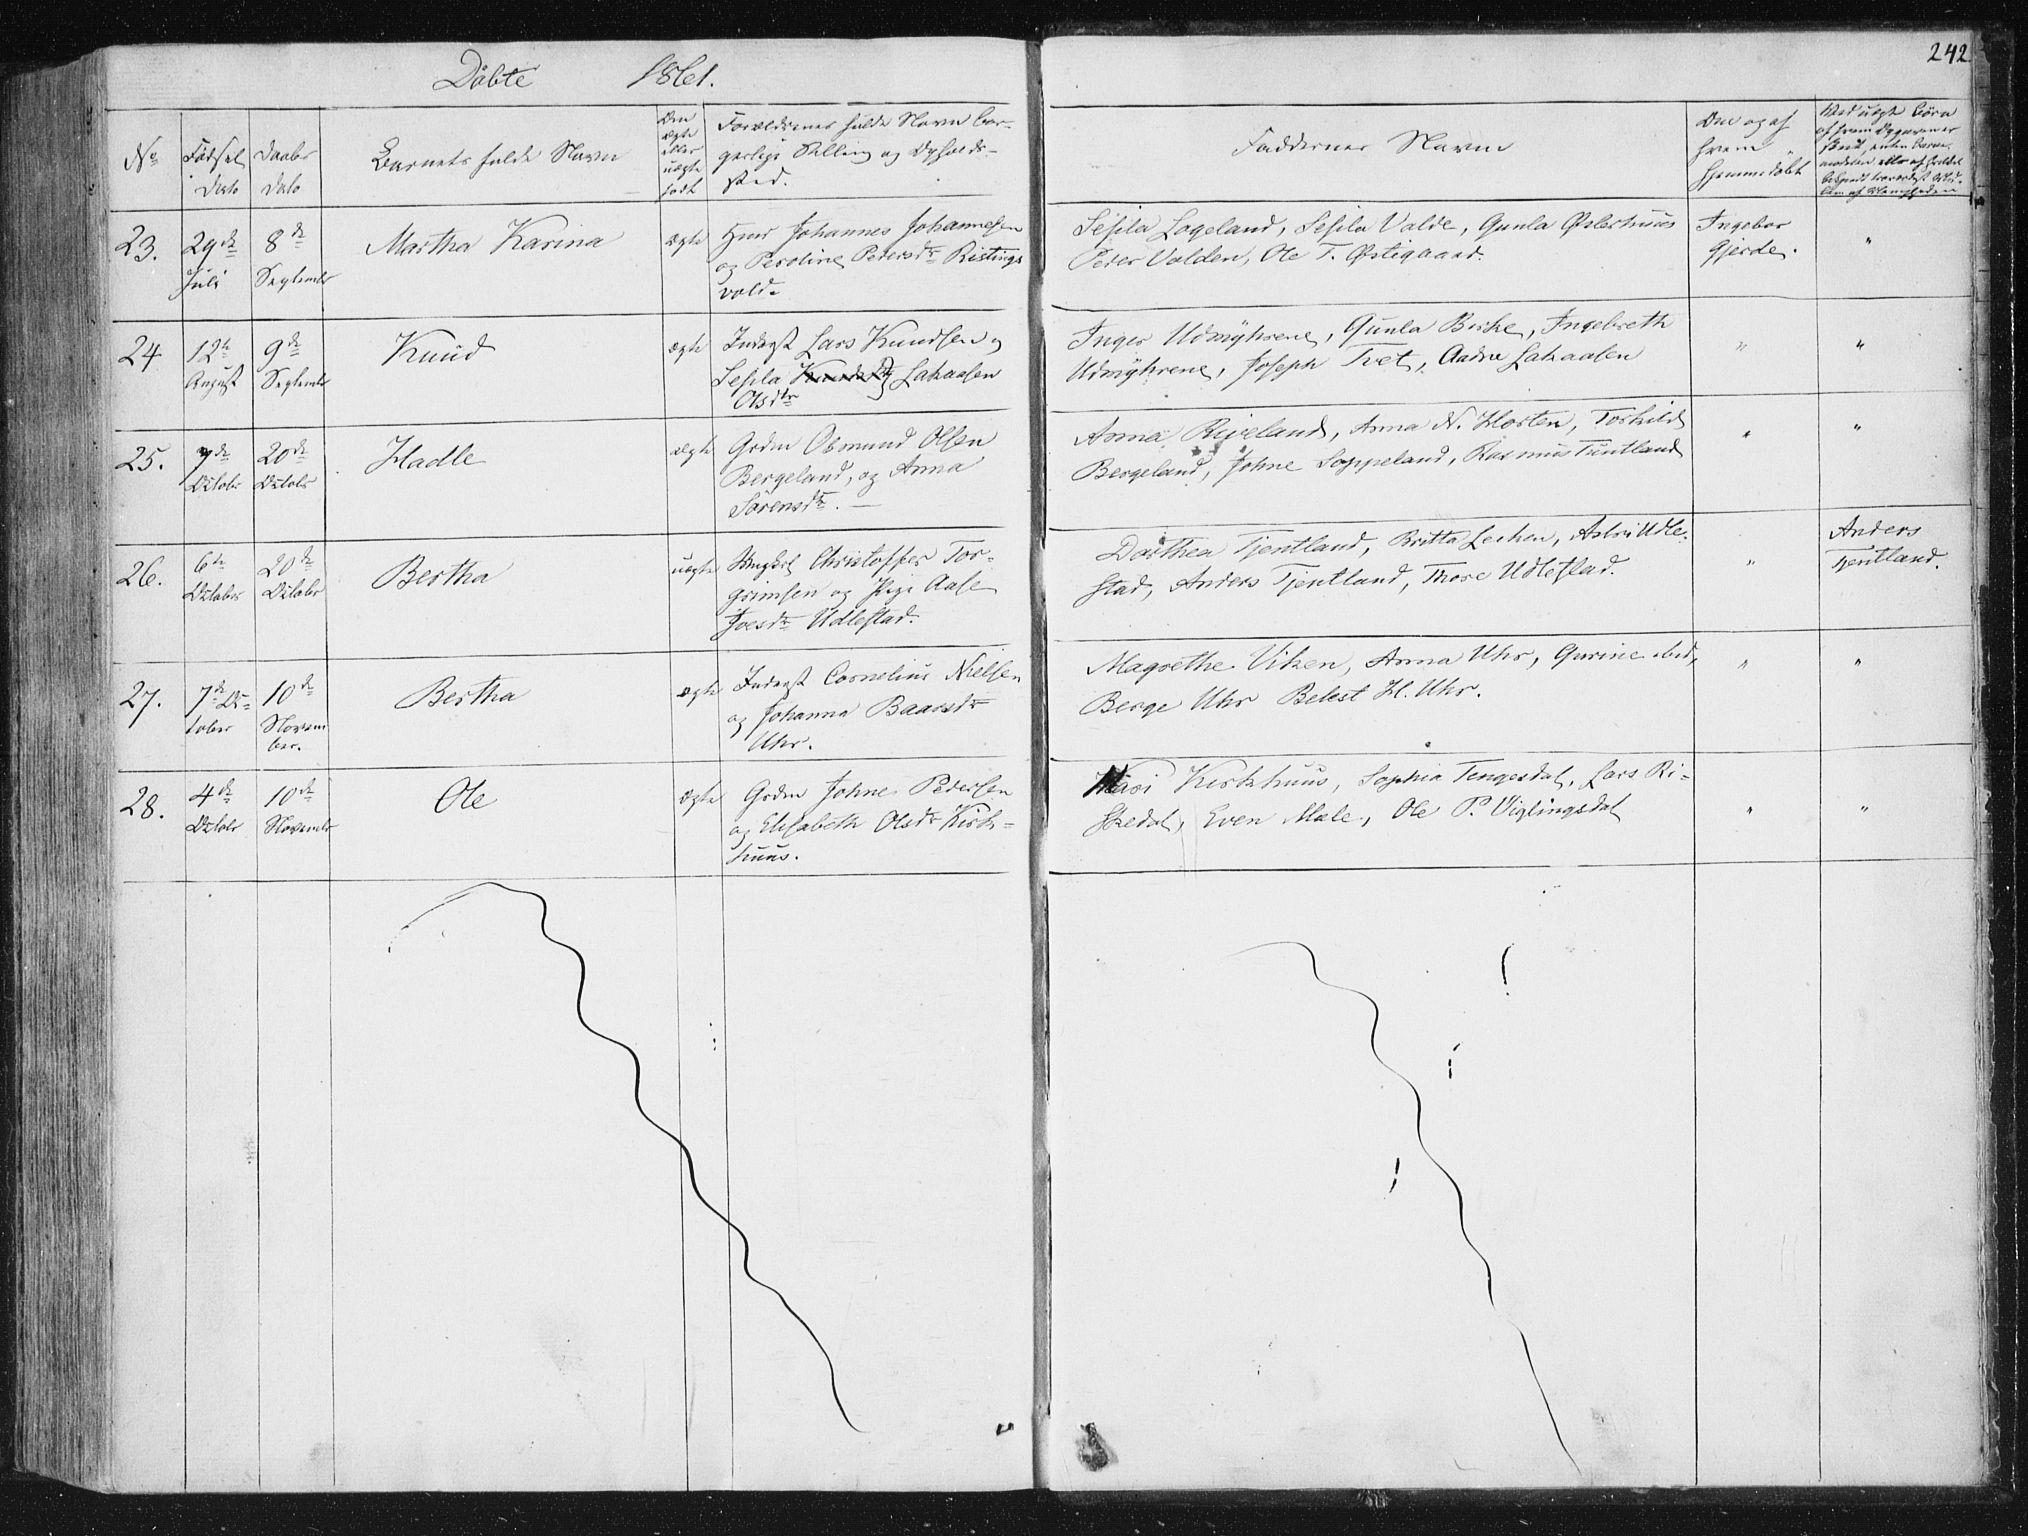 Döbte 1861.
242
No
Fødsel
Dato
Daabs
Dato
Barnets fulde Navn
Om
ægte
eller
uægte
født
Forældrenes fulde Navn bor-
gerlige Stilling og Opholds-
sted.
Faddernes Navn
Om og af
hvem
hjemmedøbt
23.
29de
Juli
8de
September
Martha Karina
ægte
Johannes Johannesen
og Peroline Petersdtr Ristings
vold.
Sesila Løgeland, Sesila Valde, Gunla Østerhuus
Peder Valden, Ole T. Østigaard.
Ingebor
Gjerde.
"
24
12te
August
9de
September
Knud
ægte
Inderst Lars Knudsen og
Sesila Lahaasen
Olsdtr
Inger Udmyhrene, Gunla Birke, Ingebreth
Udmyhrene, Joseph Tvet, Aadne Lahaasen
"
"
25.
7de
October
20de
October
Hadle
ægte
Grdm Osmund Olsen
Bergeland, og Anna
Sørensdtr. —
Anna Riveland, Anna N. Horten, Torkild
Bergeland, Johne Soppeland, Rasmus Tuntland
"
"
26.
6te
October
20de
October
Bertha
uægte
Ungkrl Christoffer Tor-
grimsen og Pige Aase
Joesdtr Udlestad.
Dorthea Tjentland, Britta Lechen, Astri Udle-
stad, Anders Tjentland, Thore Udlestad.
"
Anders
Tjentland.
27.
7de Oc-
tober
10de
Novem
ber.
Bertha
ægte
Inderst Cornelius Nielsen
og Johanna Baarsdtr
Uhr.
Magrethe Viken, Anna Uhr, Gurine ibid,
Berge Uhr Belest H. Uhr.
"
"
28.
4de
October
10de
November
Ole
ægte
Grdm Johne Pedersen
og Elisabeth Olsdtr Kirk-
huus.
Kari Kirkhuus, Sophia Tengesdal, Lars Ri-
skedal, Even Mæle, Ole P. Viglingsdal
"
"